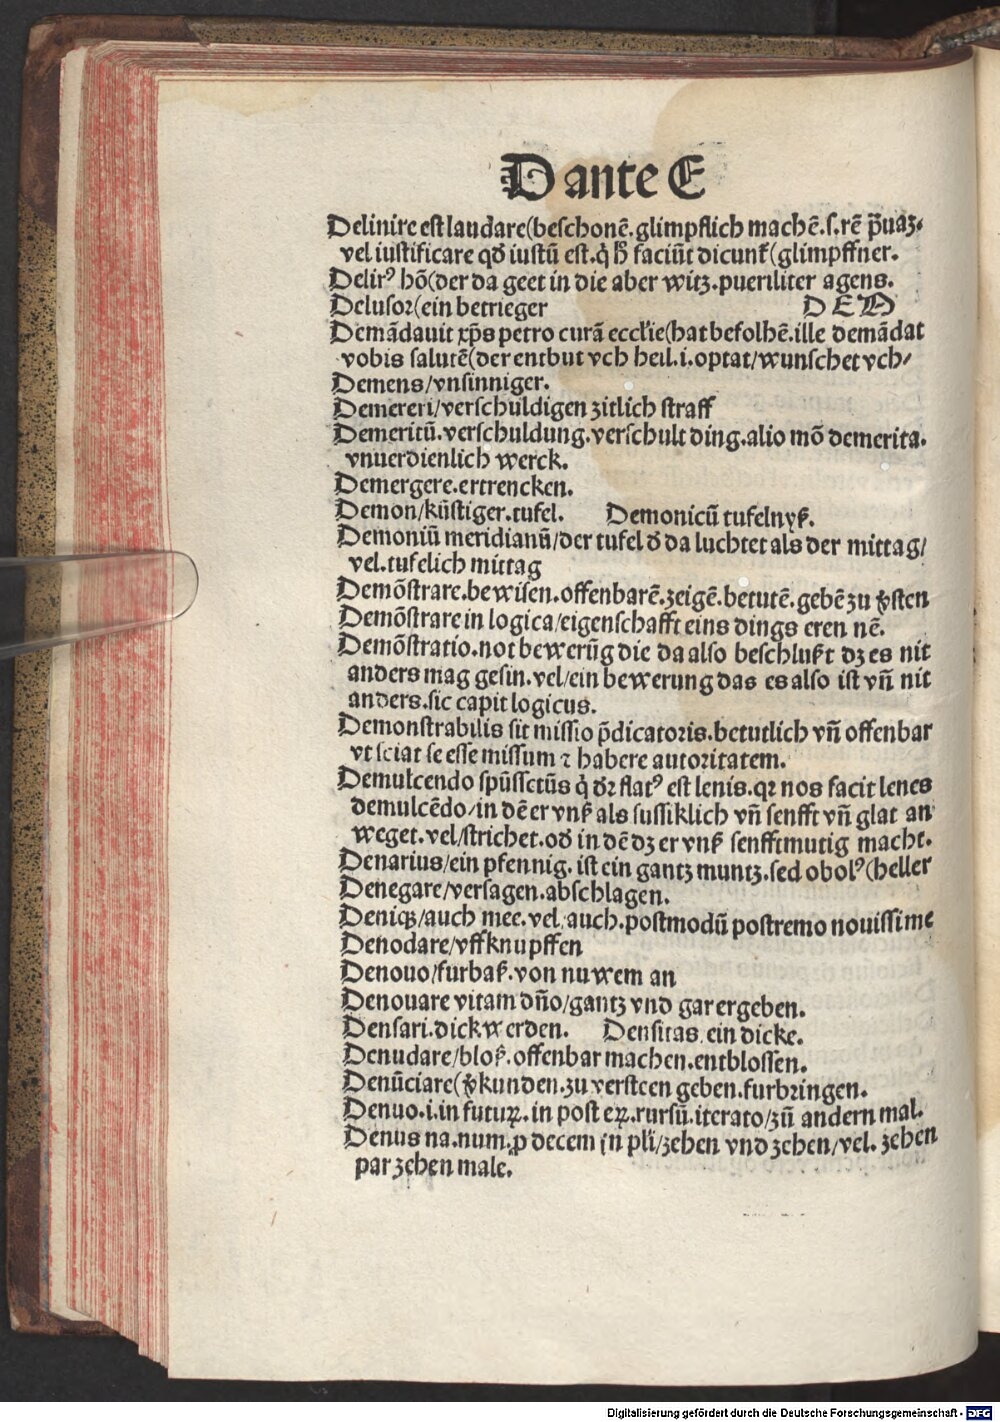 D ante E
Delinire est laudare(beschonē.glimpflich machē.s.rē p̄uaꝫ.
vel iustificare qđ iustū est.q̇ ħ faciūt dicunt᷑(glimpffner.
Delirꝰ hō(der da geet in die aber witz.pueriliter agens.
Delusor(ein betrieger D E M
Demādauit xp̄s petro curā eccl̄ie(hat befolhē.ille demādat
vobis salutē(der entbut vch heil.i.optat/wunschet vch/
Demens/vnsinniger.
Demereri/verschuldigen zitlich straff
Demeritū.verschuldung.verschult ding.alio mō demerita.
vnuerdienlich werck.
Demergere.ertrencken.
Demon/kūstiger.tufel. Demonicū tufelnyß.
Demoniū meridianū/der tufel đ da luchtet als der mittag/
vel.tufelich mittag
Demōstrare.bewisen.offenbarē.zeigē.betutē.gebē zu v̄sten
Demōstrare in logica/eigenschafft eins dings eren nē.
Demōstratio.not bewerūg die da also beschlußt dz es nit
anders mag gesin.vel/ein bewerung das es also ist vn̄ nit
anders.sic capit logicus.
Demonstrabilis sit missio p̄dicatoris.betutlich vn̄ offenbar
vt sciat se esse missum ⁊ habere autoritatem.
Demulcendo spūssctūs q̇ đr flatꝰ est lenis.qꝛ nos facit lenes
demulcēdo/in dē er vnß als sussiklich vn̄ senfft vn̄ glat an
weget.vel/strichet.ođ in dē dz er vnß senfftmutig macht.
Denarius/ein pfennig.ist ein gantz muntz.sed obolꝰ(heller
Denegare/versagen.abschlagen.
Deniqꝫ/auch mee.vel.auch.postmodū postremo nouissime
Denodare/vffknupffen
Denouo/furbaß.von nuwem an
Denouare vitam dn̄o/gantz vnd gar ergeben.
Densari.dick werden. Densitas.ein dicke.
Denudare/bloß.offenbar machen.entblossen.
Denūciare(v̄kunden.zu versteen geben.furbringen.
Denuo.i.in futuꝝ.in posteꝝ.rursū.iterato/zū andern mal.
Denus na.num.ꝓ decem in pl̄i/zehen vnd zehen/vel.zehen
par zehen male.
Digitalisierung gefördert durch die Deutsche Forschungsgemeinschaft - DFG